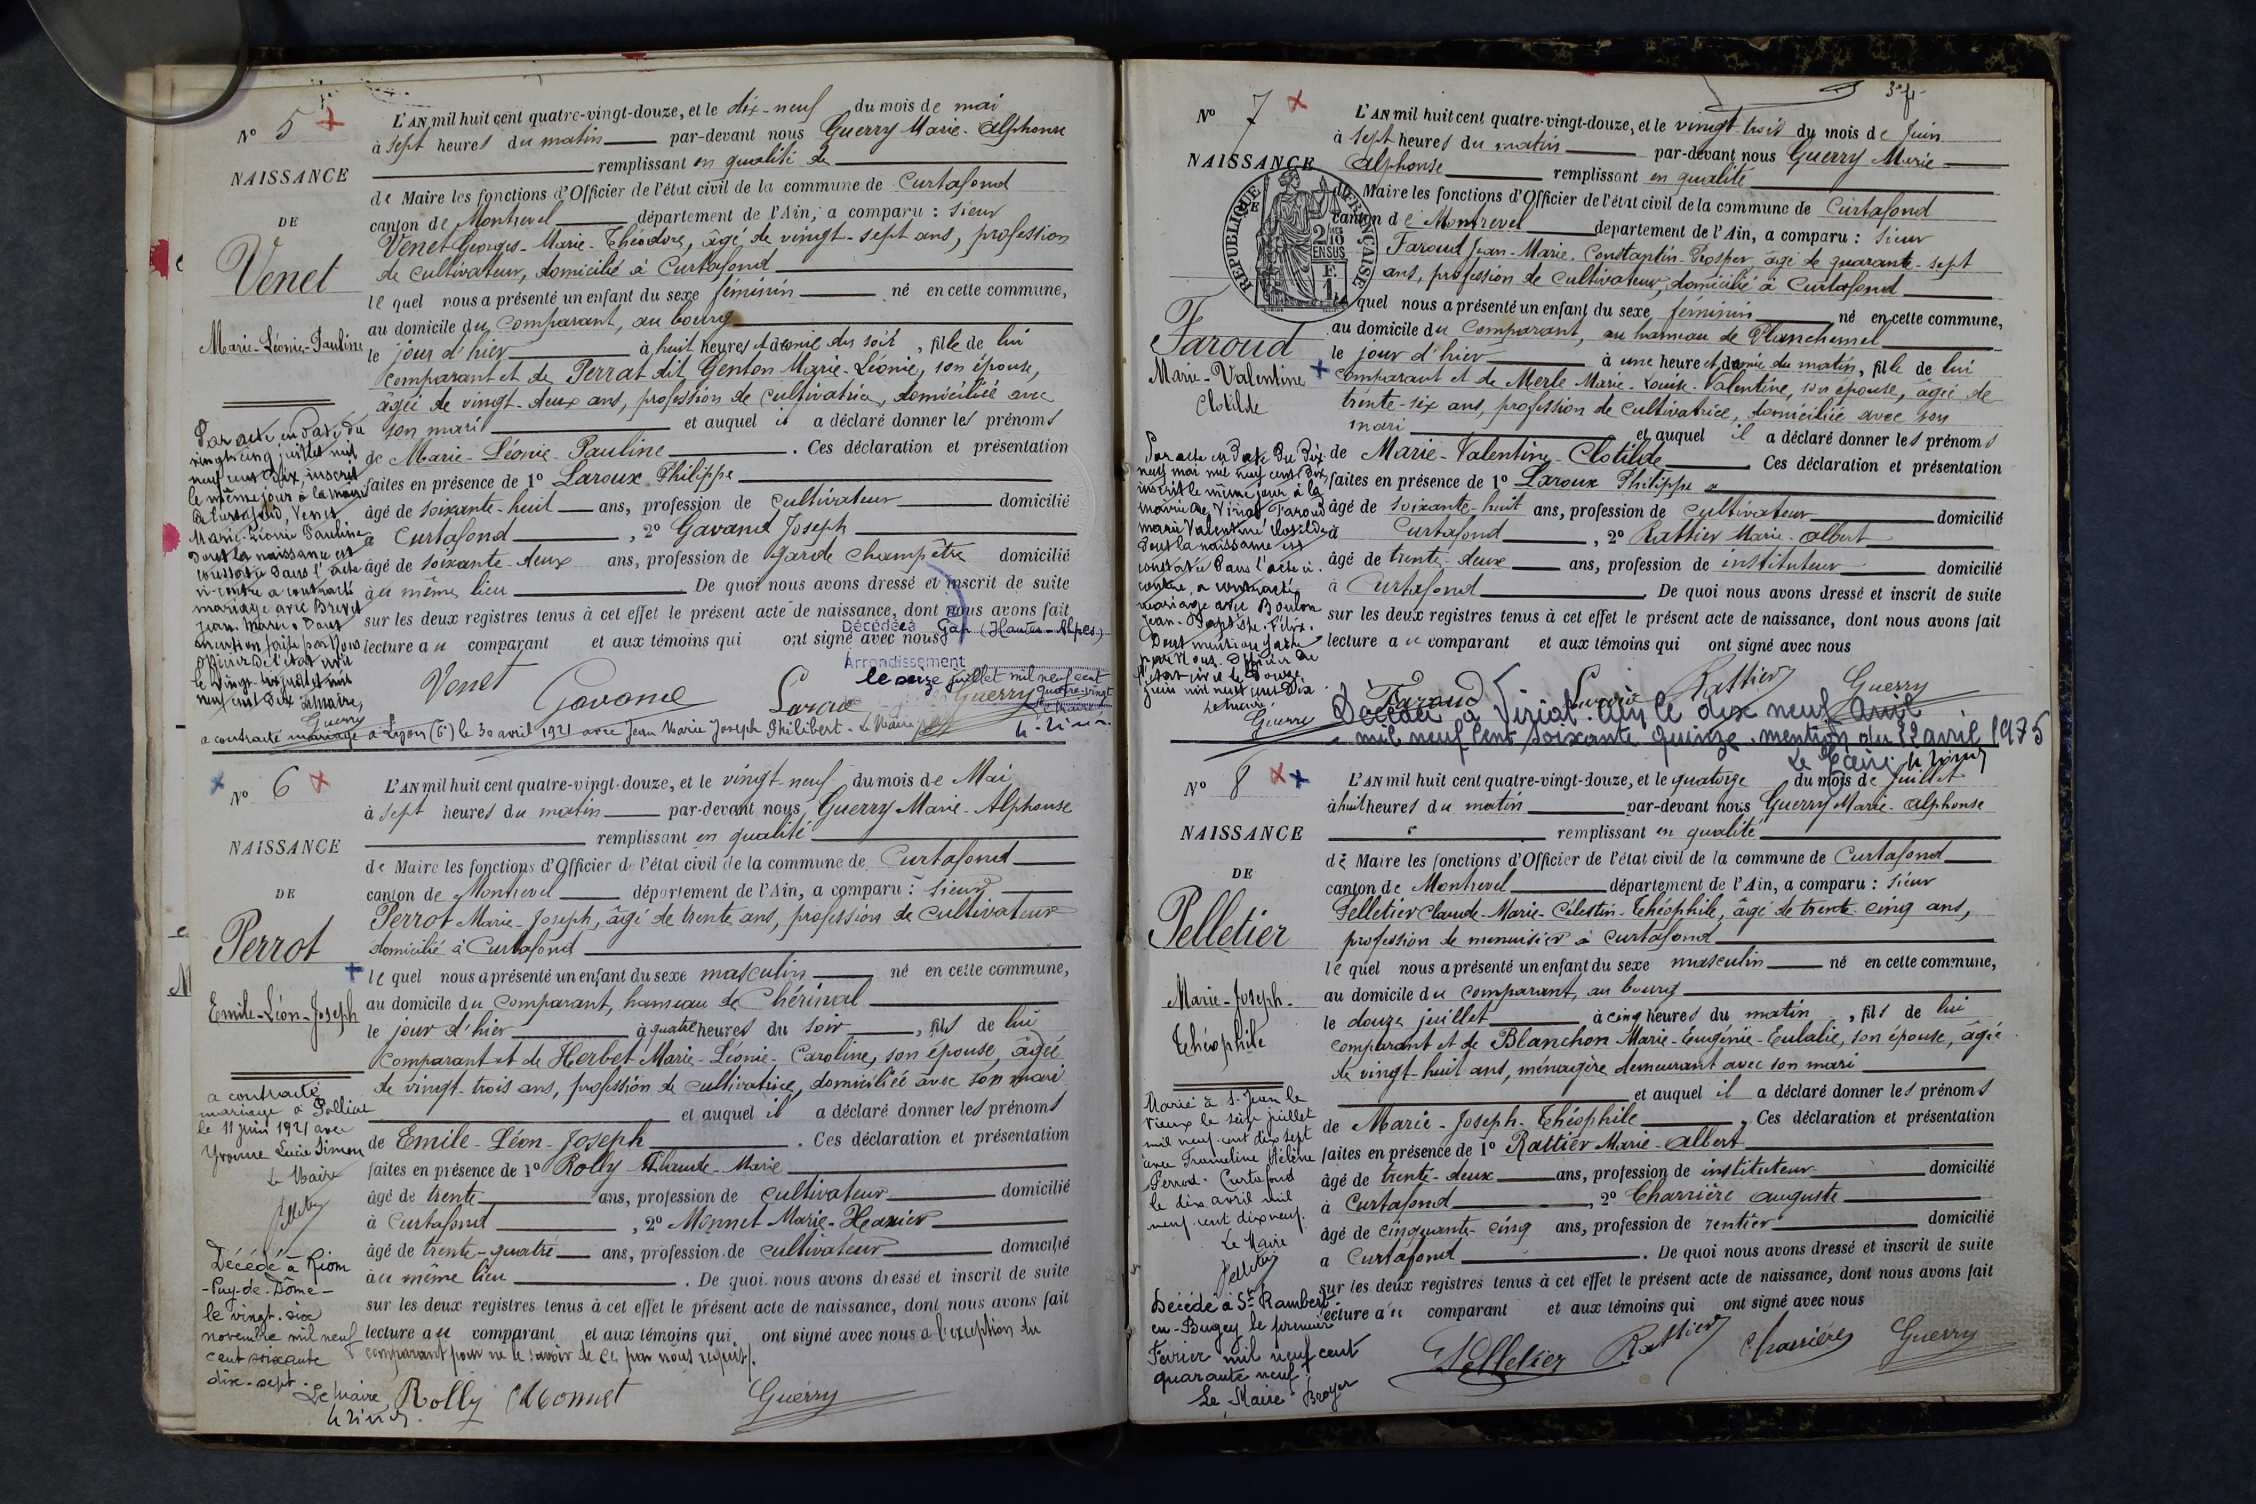 N° 5
NAISSANCE
DE
Venet
Marie-Léonie-Pauline
L'AN mil huit cent quatre-vingt-douze, et le dix-neuf du mois de mai
à sept heures du matin par-devant nous Guerry Marie-Alphonse
remplissant en qualité de
de Maire les fonctions d'Officier de l'état civil de la commune de Curtafond
canton de Montrevel département de l'Ain, a comparu : sieur
Venet Georges-Marie-Théodore, âgé de vingt-sept ans, profession
de cultivateur, domicilié à Curtafond
le quel nous a présenté un enfant du sexe féminin né en cette commune,
au domicile du comparant, au bourg
le jour d'hier à huit heures et demie du soir, fille de lui
comparant et de Perrat dit Genton Marie-Léonie, son épouse,
âgée de vingt-deux ans, profession de cultivatrice, domiciliée avec
son mari et auquel il a déclaré donner les prénoms
de Marie-Léonie-Pauline . Ces déclaration et présentation
faites en présence de 1° Laroux Philippe
âgé de soixante-huit ans, profession de cultivateur domicilié
à Curtafond , 2° Gavand Joseph
âgé de soixante-deux ans, profession de garde champêtre domicilié
au même lieu De quoi nous avons dressé et inscrit de suite
sur les deux registres tenus à cet effet le présent acte de naissance, dont nous avons fait
lecture au comparant et aux témoins qui ont signé avec nous
Par acte en date du
vingt cinq juillet mil
neuf cent dix, inscrit
le même jour à la mairie
de Curtafond, Venet
Marie-Léonie Pauline
dont la naissance est
constatée dans l'acte
ci-contre a contracté
mariage avec Brevet
Jean-Marie. Dont
mention faite par Nous
Officier de l'état civil
le vingt-six juillet mil
neuf cent dix Le Maire,
Guerry
Décédée à Gap (Hautes-Alpes)
Arrondissement
le onze juillet mil neuf cent
quatre-vingt
Le Maire
Venet Gavand Laroux Guerry
a contracté mariage à Lyon (6e) le 30 avril 1921 avec Jean Marie Joseph Philibert. Le Maire
N° 6
NAISSANCE
DE
Perrot
Emile-Léon-Joseph
L'AN mil huit cent quatre-vingt-douze, et le vingt-neuf du mois de Mai
à sept heures du matin par-devant nous Guerry Marie-Alphonse
remplissant en qualité
de Maire les fonctions d'Officier de l'état civil de la commune de Curtafond
canton de Montrevel département de l'Ain, a comparu : sieur
Perrot Marie-Joseph, âgé de trente ans, profession de cultivateur
domicilié à Curtafond
le quel nous a présenté un enfant du sexe masculin né en cette commune,
au domicile du comparant, hameau de Chérinal
le jour d'hier à quatre heures du soir, fils de lui
comparant et de Herbet Marie-Léonie-Caroline, son épouse, âgée
de vingt-trois ans, profession de cultivatrice, domiciliée avec son mari
et auquel il a déclaré donner les prénoms
de Emile-Léon-Joseph . Ces déclaration et présentation
faites en présence de 1° Rolly Claude-Marie
âgé de trente ans, profession de cultivateur domicilié
à Curtafond , 2° Monnet Marie-Xavier
âgé de trente-quatre ans, profession de cultivateur domicilié
au même lieu . De quoi nous avons dressé et inscrit de suite
sur les deux registres tenus à cet effet le présent acte de naissance, dont nous avons fait
lecture au comparant et aux témoins qui ont signé avec nous à l'exception du
comparant pour ne le savoir de ce par nous requis.
a contracté
mariage à Polliat
le 11 juin 1921 avec
Yvonne Lucie Simon
Le Maire
Pelletier
Décédé à Riom
-Puy-de-Dôme-
le vingt-six
novembre mil neuf
cent soixante
dix-sept.
Le Maire,
Rolly Monnet Guerry
3e f.
N° 7
NAISSANCE
DE
REPUBLIQUE FRANÇAISE
2/10 EN SUS
Faroud
Marie-Valentine
Clotilde
L'AN mil huit cent quatre-vingt-douze, et le vingt-trois du mois de Juin
à sept heures du matin par-devant nous Guerry Marie
Alphonse remplissant en qualité
de Maire les fonctions d'Officier de l'état civil de la commune de Curtafond
canton de Montrevel département de l'Ain, a comparu : sieur
Faroud Jean-Marie-Constantin-Prosper âgé de quarante-sept
ans, profession de cultivateur, domicilié à Curtafond
le quel nous a présenté un enfant du sexe féminin né en cette commune,
au domicile du comparant, au hameau de Planchemel
le jour d'hier à une heure et demie du matin, fille de lui
comparant et de Merle Marie-Louise-Valentine, son épouse, âgée de
trente-six ans, profession de cultivatrice, domiciliée avec son
mari et auquel il a déclaré donner les prénoms
de Marie-Valentine-Clotilde Ces déclaration et présentation
faites en présence de 1° Laroux Philippe
âgé de soixante-huit ans, profession de cultivateur domicilié
à Curtafond , 2° Rattier Marie-Albert
âgé de trente-deux ans, profession de instituteur domicilié
à Curtafond De quoi nous avons dressé et inscrit de suite
sur les deux registres tenus à cet effet le présent acte de naissance, dont nous avons fait
lecture au comparant et aux témoins qui ont signé avec nous
Par acte en date du dix
neuf mai mil neuf cent dix,
inscrit le même jour à la
mairie de Viriat Faroud
Marie Valentine Clotilde
dont la naissance est
constatée dans l'acte ci-
contre, a contracté
mariage avec Boulon
Jean-Baptiste-Félix.
Dont mention faite
par Nous Officier de
l'état civil le douze
juin mil neuf cent dix
Le Maire
Guerry
Faroud Laroux Rattier Guerry
Décédée à Viriat Ain le dix neuf avril
mil neuf cent soixante quinze. mention du 22 avril 1975
Le Maire
N° 8
NAISSANCE
DE
Pelletier
Marie-Joseph-
Théophile
L'AN mil huit cent quatre-vingt-douze, et le quatorze du mois de Juillet
à huit heures du matin par-devant nous Guerry Marie-Alphonse
remplissant en qualité
de Maire les fonctions d'Officier de l'état civil de la commune de Curtafond
canton de Montrevel département de l'Ain, a comparu : sieur
Pelletier Claude-Marie-Célestin-Théophile, âgé de trente-cinq ans,
profession de menuisier à Curtafond
le quel nous a présenté un enfant du sexe masculin né en cette commune,
au domicile du comparant, au bourg
le douze juillet à cinq heures du matin, fils de lui
comparant et de Blanchon Marie-Eugénie-Eulalie, son épouse, âgée
de vingt-huit ans, ménagère demeurant avec son mari
et auquel il a déclaré donner les prénoms
de Marie-Joseph-Théophile . Ces déclaration et présentation
faites en présence de 1° Rattier Marie-Albert
âgé de trente-deux ans, profession de instituteur domicilié
à Curtafond , 2° Charrière Auguste
âgé de cinquante-cinq ans, profession de rentier domicilié
à Curtafond . De quoi nous avons dressé et inscrit de suite
sur les deux registres tenus à cet effet le présent acte de naissance, dont nous avons fait
lecture au comparant et aux témoins qui ont signé avec nous
Marié à St Jean le
Vieux le seize juillet
mil neuf cent dix sept
avec Hélène
Perrod. Curtafond
le dix avril mil
neuf cent dix neuf.
Le Maire
Pelletier
Décédé à St Rambert-
en-Bugey le premier
Février mil neuf cent
quarante neuf.
Le Maire Broyer
Pelletier Rattier Charrière Guerry